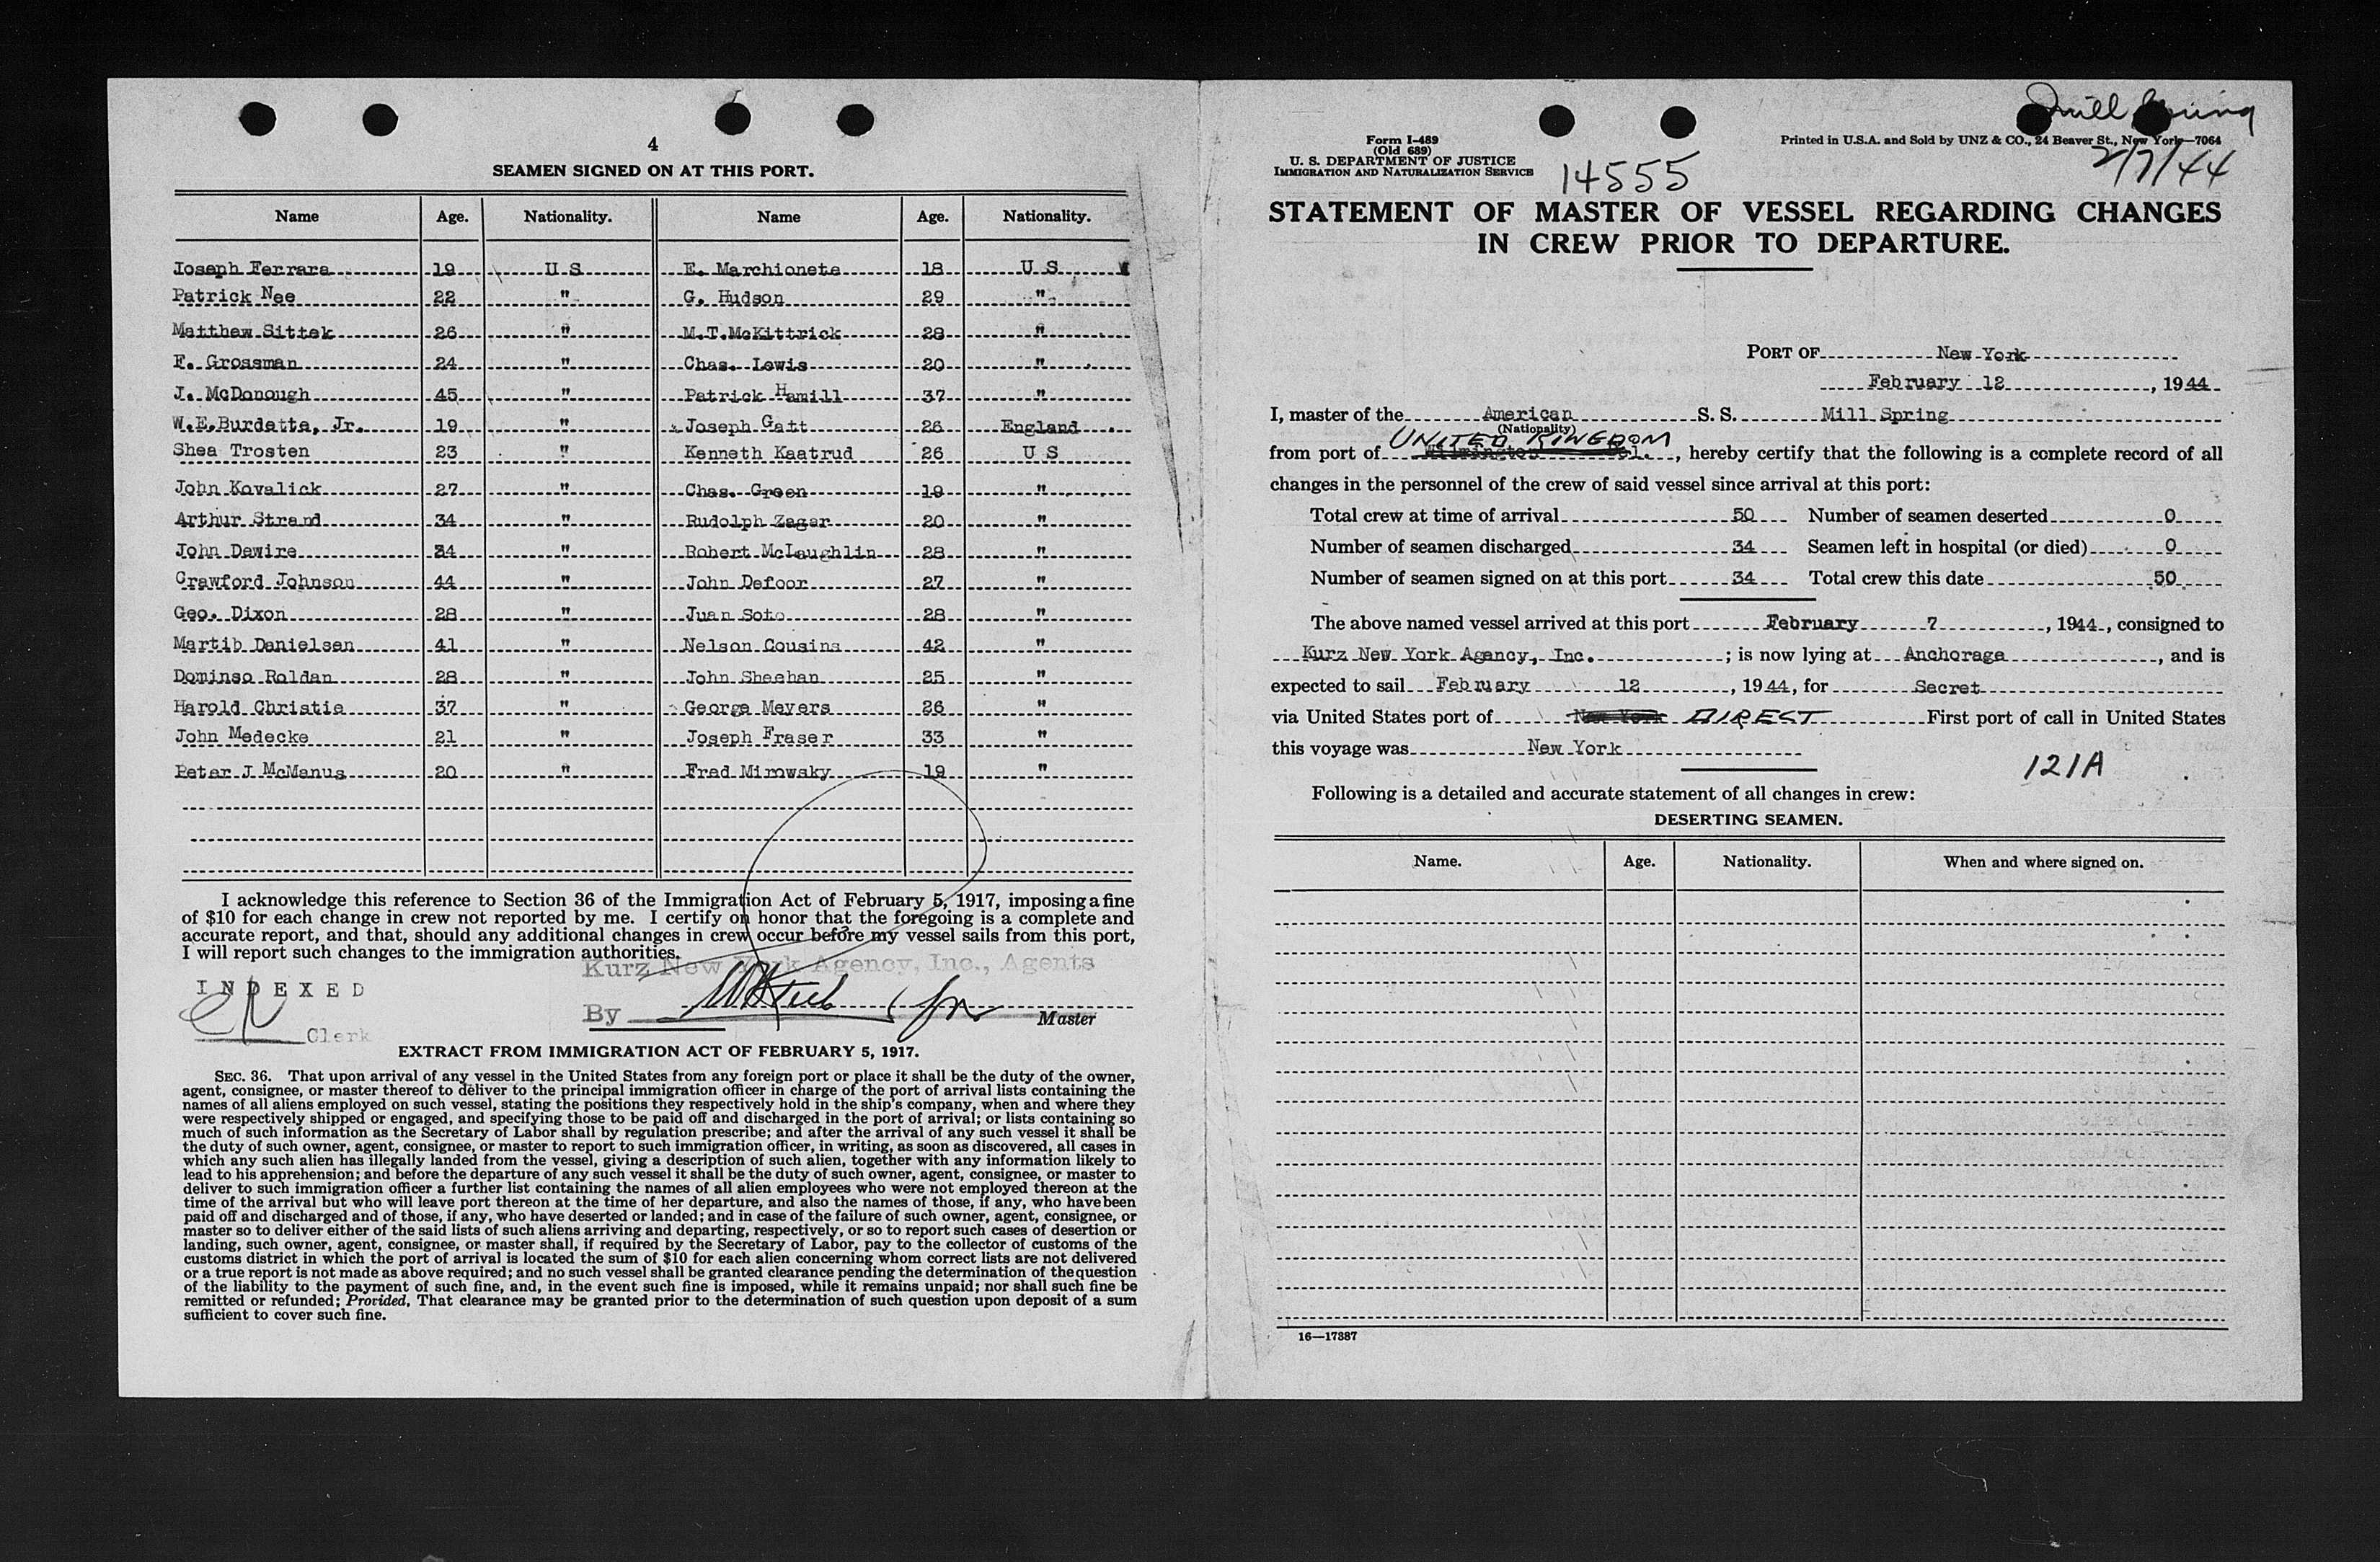 4
SEAMEN SIGNED ON AT THIS PORT.
Name Age. Nationality. Name Age. Nationality.
Joseph Ferrara 19 U S E. Marchionete 18 U S
Patrick Nee 22 " G. Hudson 29 "
Matthew Sittek 26 " M.T.McKittrick 28 "
F. Grossman 24 " Chas. Lewis 20 "
J. McDonough 45 " Patrick Hamill 37 "
W.E.Burdette, Jr. 19 " Joseph Gatt 26 England
Shea Trosten 23 " Kenneth Kaatrud 26 U S
John Kovalick 27 " Chas. Green 19 "
Arthur Strand 34 " Rudolph Zagar 20 "
John Dewire 34 " Robert McLaughlin 28 "
Crawford Johnson 44 " John Defoor 27 "
Geo. Dixon 28 " Juan Soto 28 "
Martib Danielsen 41 " Nelson Cousins 42 "
Dominso Roldan 28 " John Sheehan 25 "
Harold Christie 37 " George Meyers 26 "
John Medecke 21 " Joseph Fraser 33 "
Peter J McManus 20 " Fred Mirowsky 19 "
I acknowledge this reference to Section 36 of the Immigration Act of February 5, 1917, imposing a fine
of $10 for each change in crew not reported by me. I certify on honor that the foregoing is a complete and
accurate report, and that, should any additional changes in crew occur before my vessel sails from this port,
I will report such changes to the immigration authorities.
Kurz New York Agency, Inc., Agents
INDEXED
By Master
Clerk
EXTRACT FROM IMMIGRATION ACT OF FEBRUARY 5, 1917.
SEC. 36. That upon arrival of any vessel in the United States from any foreign port or place it shall be the duty of the owner,
agent, consignee, or master thereof to deliver to the principal immigration officer in charge of the port of arrival lists containing the
names of all aliens employed on such vessel, stating the positions they respectively hold in the ship's company, when and where they
were respectively shipped or engaged, and specifying those to be paid off and discharged in the port of arrival; or lists containing so
much of such information as the Secretary of Labor shall by regulation prescribe; and after the arrival of any such vessel it shall be
the duty of such owner, agent, consignee, or master to report to such immigration officer, in writing, as soon as discovered, all cases in
which any such alien has illegally landed from the vessel, giving a description of such alien, together with any information likely to
lead to his apprehension; and before the departure of any such vessel it shall be the duty of such owner, agent, consignee, or master to
deliver to such immigration officer a further list containing the names of all alien employees who were not employed thereon at the
time of the arrival but who will leave port thereon at the time of her departure, and also the names of those, if any, who have been
paid off and discharged and of those, if any, who have deserted or landed; and in case of the failure of such owner, agent, consignee, or
master so to deliver either of the said lists of such aliens arriving and departing, respectively, or so to report such cases of desertion or
landing, such owner, agent, consignee, or master shall, if required by the Secretary of Labor, pay to the collector of customs of the
customs district in which the port of arrival is located the sum of $10 for each alien concerning whom correct lists are not delivered
or a true report is not made as above required; and no such vessel shall be granted clearance pending the determination of the question
of the liability to the payment of such fine, and, in the event such fine is imposed, while it remains unpaid; nor shall such fine be
remitted or refunded; Provided, That clearance may be granted prior to the determination of such question upon deposit of a sum
sufficient to cover such fine.
Mill Spring
Form I-489
(Old 689)
U. S. DEPARTMENT OF JUSTICE
IMMIGRATION AND NATURALIZATION SERVICE
14555
Printed in U.S.A. and Sold by UNZ & CO., 24 Beaver St., New York—7064
2/7/44
STATEMENT OF MASTER OF VESSEL REGARDING CHANGES
IN CREW PRIOR TO DEPARTURE.
PORT OF New York
February 12, 1944
I, master of the American S. S. Mill Spring
(Nationality)
UNITED KINGDOM
from port of Wilmington Del., hereby certify that the following is a complete record of all
changes in the personnel of the crew of said vessel since arrival at this port:
Total crew at time of arrival 50 Number of seamen deserted 0
Number of seamen discharged 34 Seamen left in hospital (or died) 0
Number of seamen signed on at this port 34 Total crew this date 50
The above named vessel arrived at this port February 7, 1944, consigned to
Kurz New York Agency, Inc. ; is now lying at Anchorage, and is
expected to sail February 12, 1944, for Secret
via United States port of New York DIRECT First port of call in United States
this voyage was New York
121A
Following is a detailed and accurate statement of all changes in crew:
DESERTING SEAMEN.
Name. Age. Nationality. When and where signed on.
16—17387